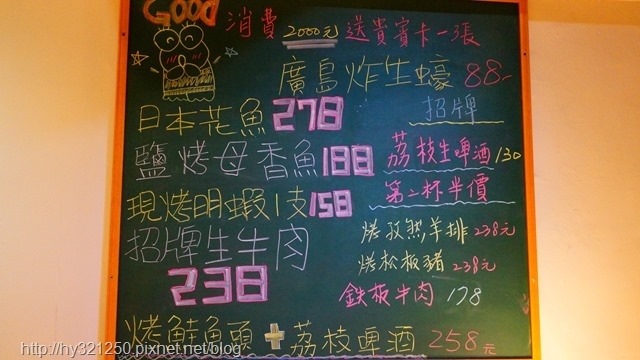 GOOD
消費 2000元 送貴賓卡一張
廣島炸生蠔 88-
招牌
日本花魚 278
鹽烤母香魚 188
荔枝生啤酒 130
第二杯半價
現烤明蝦1支 158
烤孜然羊排 238元
招牌生牛肉
238
烤松板豬 238元
鉄板牛肉 178
烤鮭魚頭+荔枝啤酒 258元
http://hy321250.pixnet.net/blog